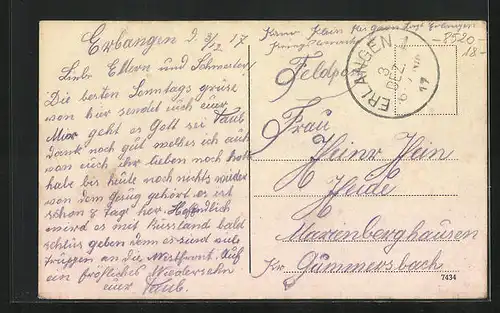 Erlangen 2 3/2 17
Liebe Eltern und Schwester
Die besten Sonntags grüse
von hier sendet euch eur
Mir geht es Gott sei
Dank noch gut welches ich auch
von euch ihr lieben noch hoffe
habe bis heute noch nichts wieder
von dem gehört es ist
schon 8 tag her. Hoffendlich
wird es mit Russland bald
schlus geben den es sind
trüppen an die Westfront. Auf
ein fröhliches Wiedersehn
eur
8520-
18-
Feldpost
ERLANGEN
3 DEZ
17
Frau
Heinr Hein
Heide
Marienberghausen
Kr. Gummersbach
7434